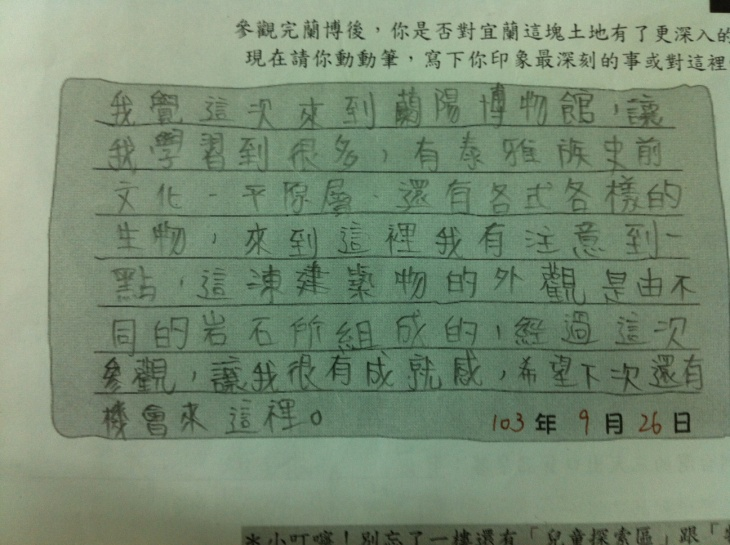 參觀完蘭博後，你是否對宜蘭這塊土地有了更深入的
現在請你動動筆，寫下你印象最深刻的事或對這裡
我覺這次來到蘭陽博物館，讓
我學習到很多，有泰雅族史前
文化、平原層、還有各式各樣的
生物，來到這裡我有注意到一
點，這凍建築物的外觀是由不
同的岩石所組成的，經過這次
參觀，讓我很有成就感，希望下次還有
機會來這裡。
103年 9月 26日
＊小叮嚀！別忘了一樓還有「兒童探索區」跟「